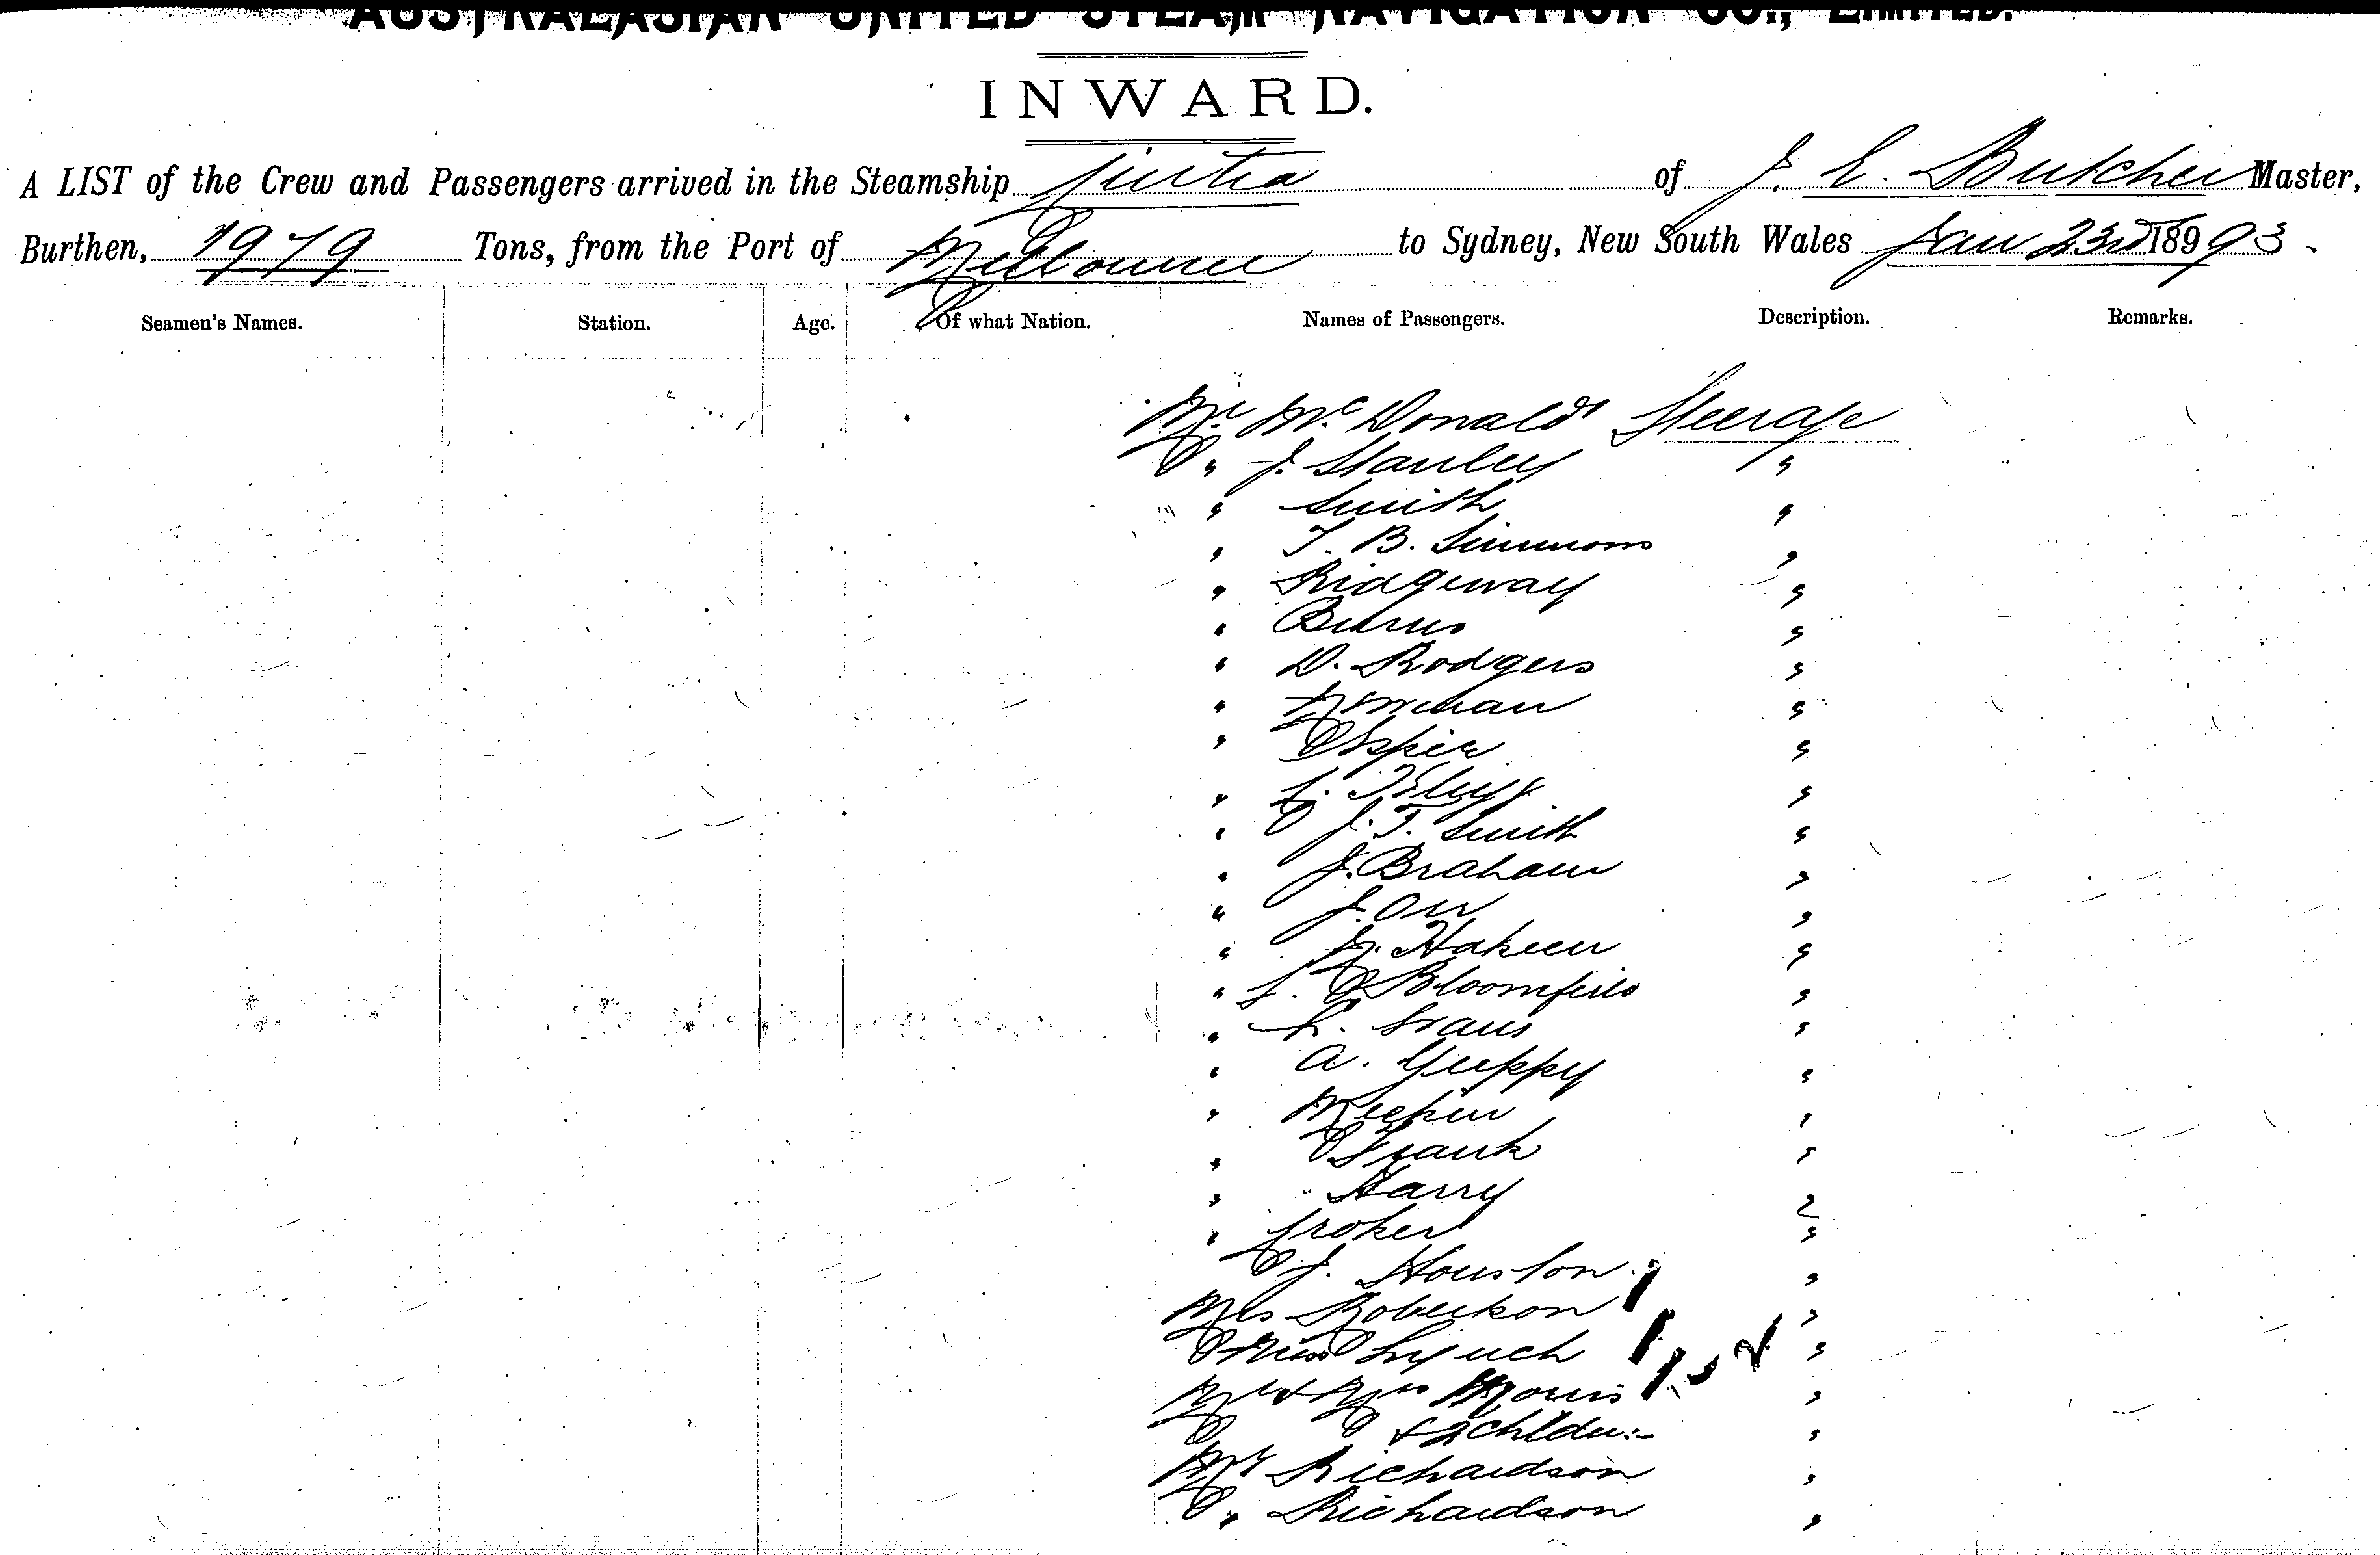 AUSTRALASIAN UNITED STEAM NAVIGATION CO., LIMITED.
INWARD.
A LIST of the Crew and Passengers arrived in the Steamship Jintra of J. E. Butcher Master,
Burthen, 1979 Tons, from the Port of Melbourne to Sydney, New South Wales Jan 23rd 1893
Seamen's Names. Station. Age. Of what Nation. Names of Passengers. Description. Remarks.
Mr McDonald Steerage
" J. Stanley "
" Smith "
" T. B. Simmons "
" Ridgeway "
" Burns "
" D. Rodgers "
" Norman "
" "
" "
" J. T. Smith "
" J. Braham "
" J. Orr "
" Hakeen "
" Bloomfield "
" "
" A. Guppy "
" "
" Frank "
" Harry "
" Croker "
J. Houston "
Mrs Robertson "
Miss Lynch "
Mr & Mrs Morris "
& 2 Childn "
Mr Richardson "
" Richardson "